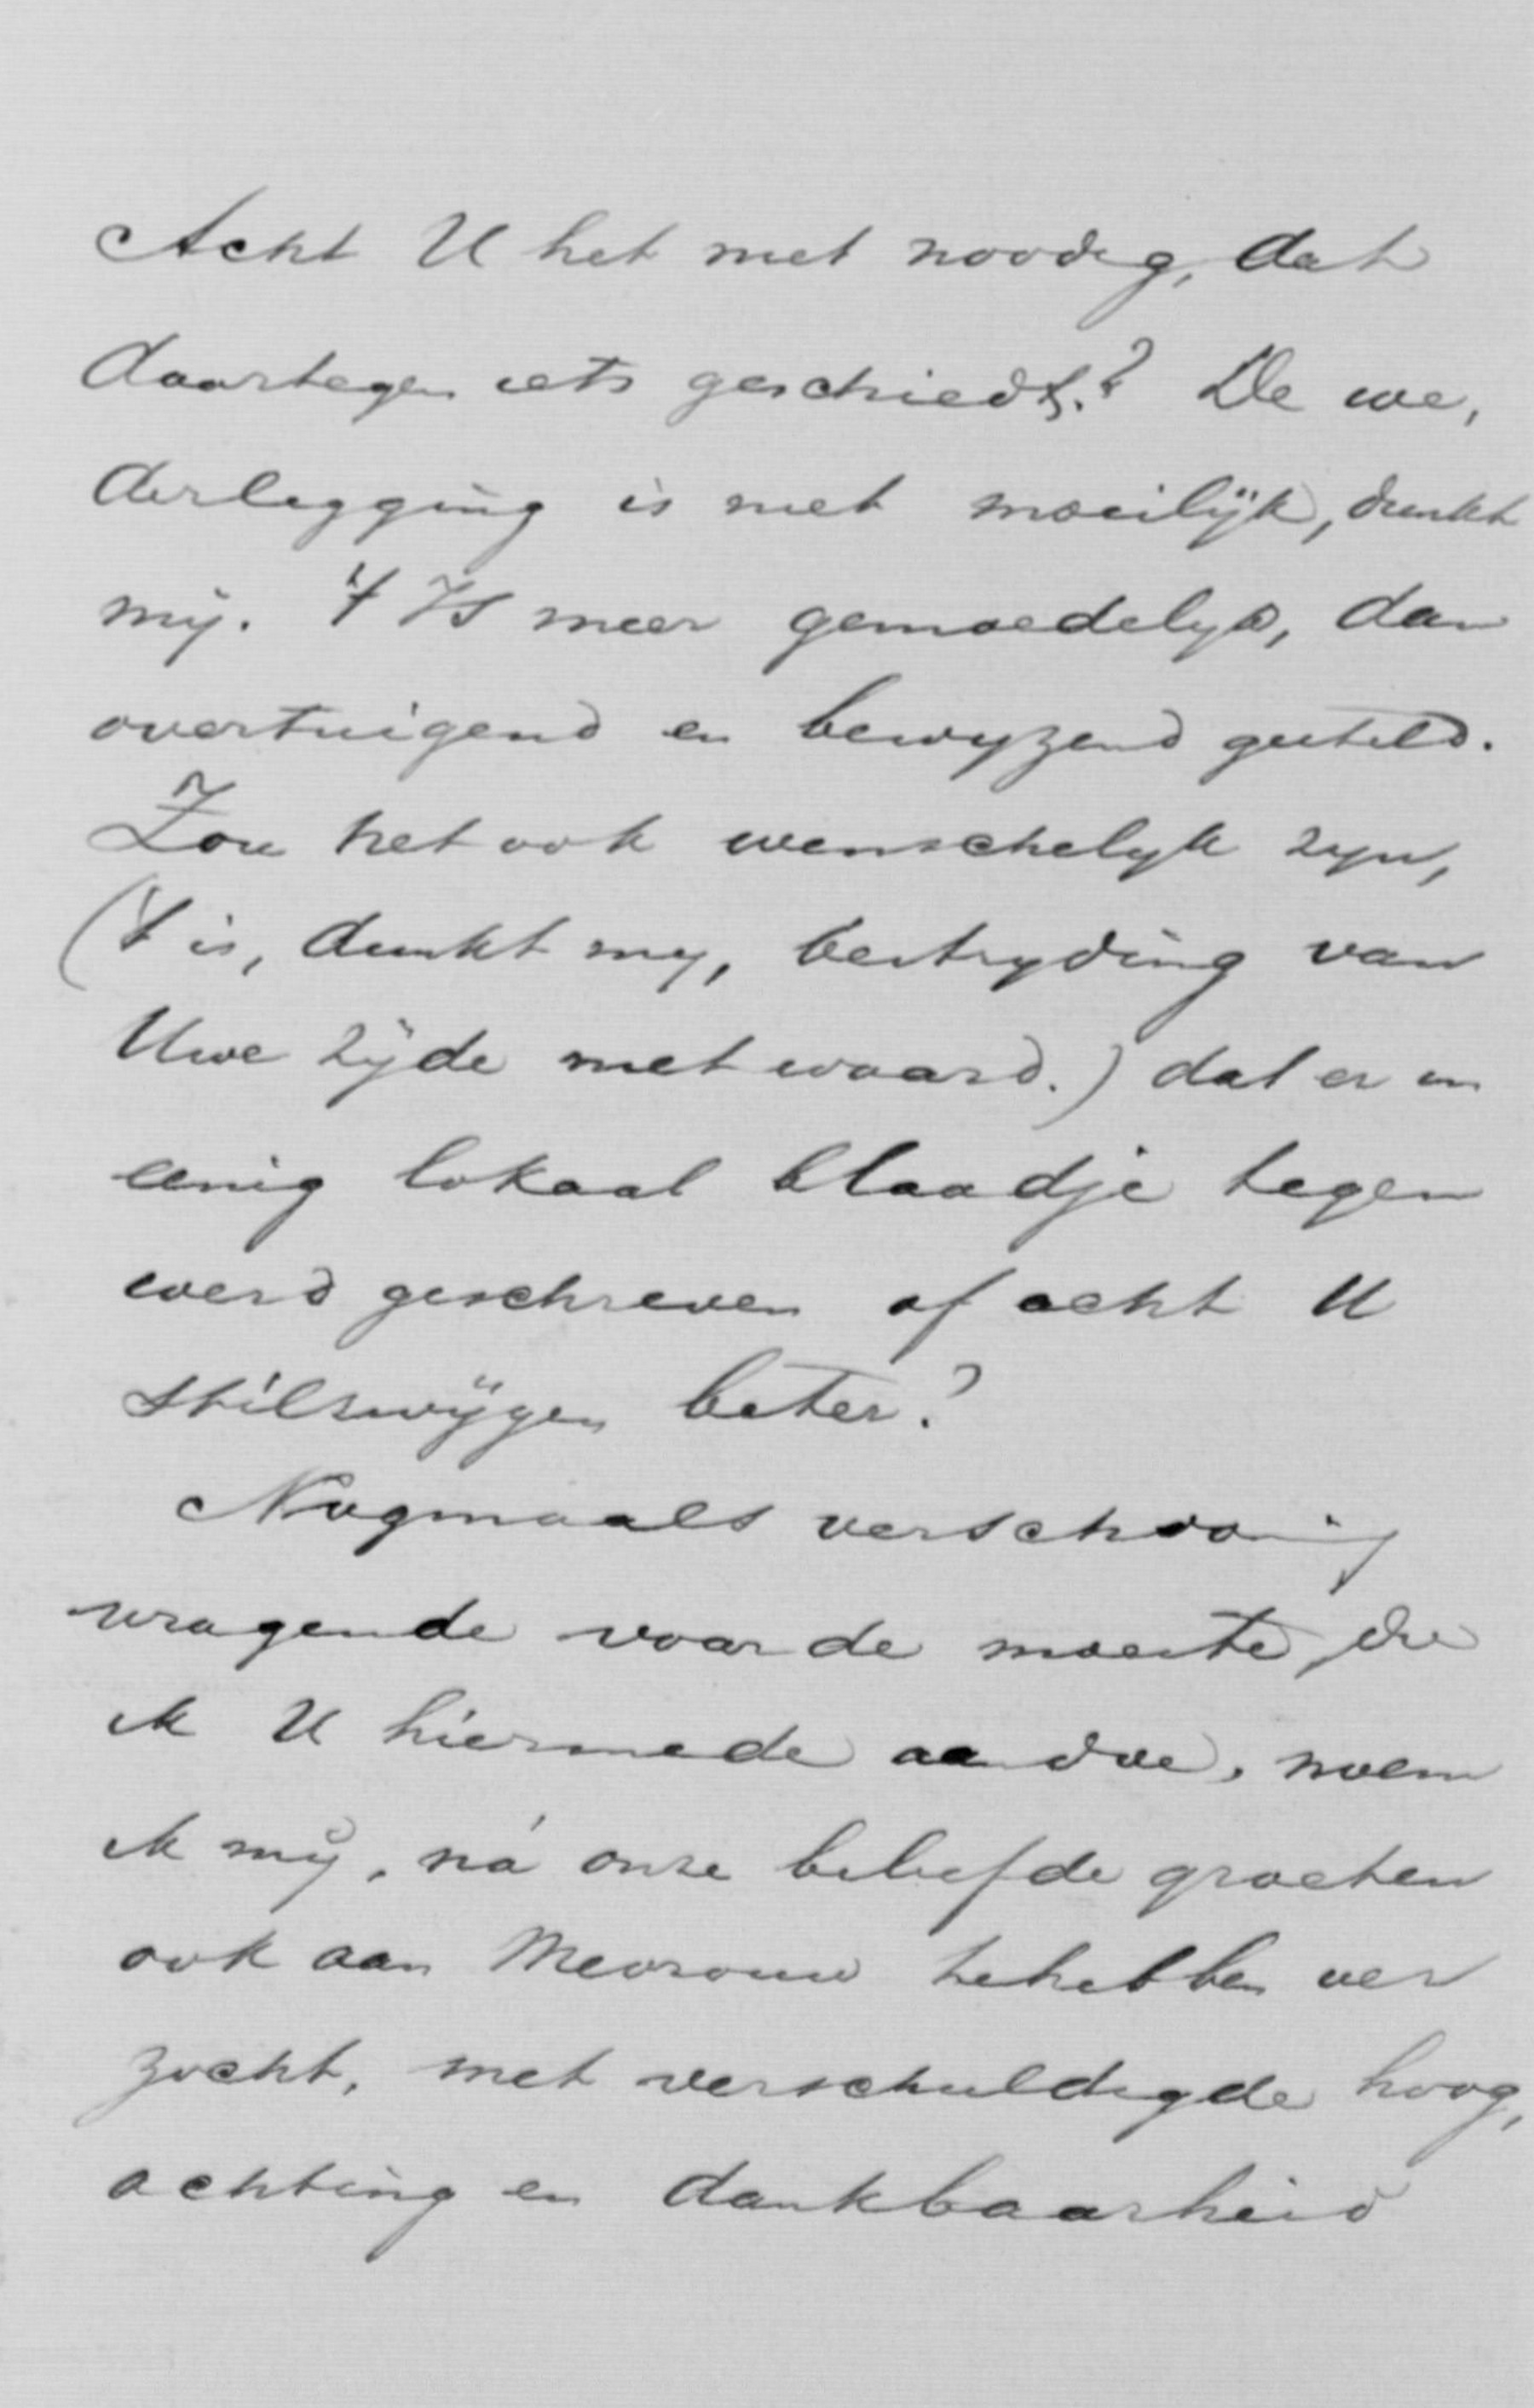 Acht U het niet noodig, dat
daartegen iets geschiedt.? De we,
derlegging is niet moeilijk, dunkt
mij. 't Is meer gemoedelijk, dan
overtuigend en bewijzend gesteld.
Zou het ook wenschelijk zijn,
('t is, dunkt mij, bestrijding van
Uwe zijde niet waard.) dat er in
eenig lokaal blaadje tegen
werd geschreven of acht U
stilzwijgen beter?
Nogmaals verschooning
vragende voor de moeite, die
ik U hiermede aandoe, noem
ik mij, ná onze beleefde groeten
ook aan Mevrouw te hebben ver
zocht, met verschuldigde hoog,
achting en dankbaarheid